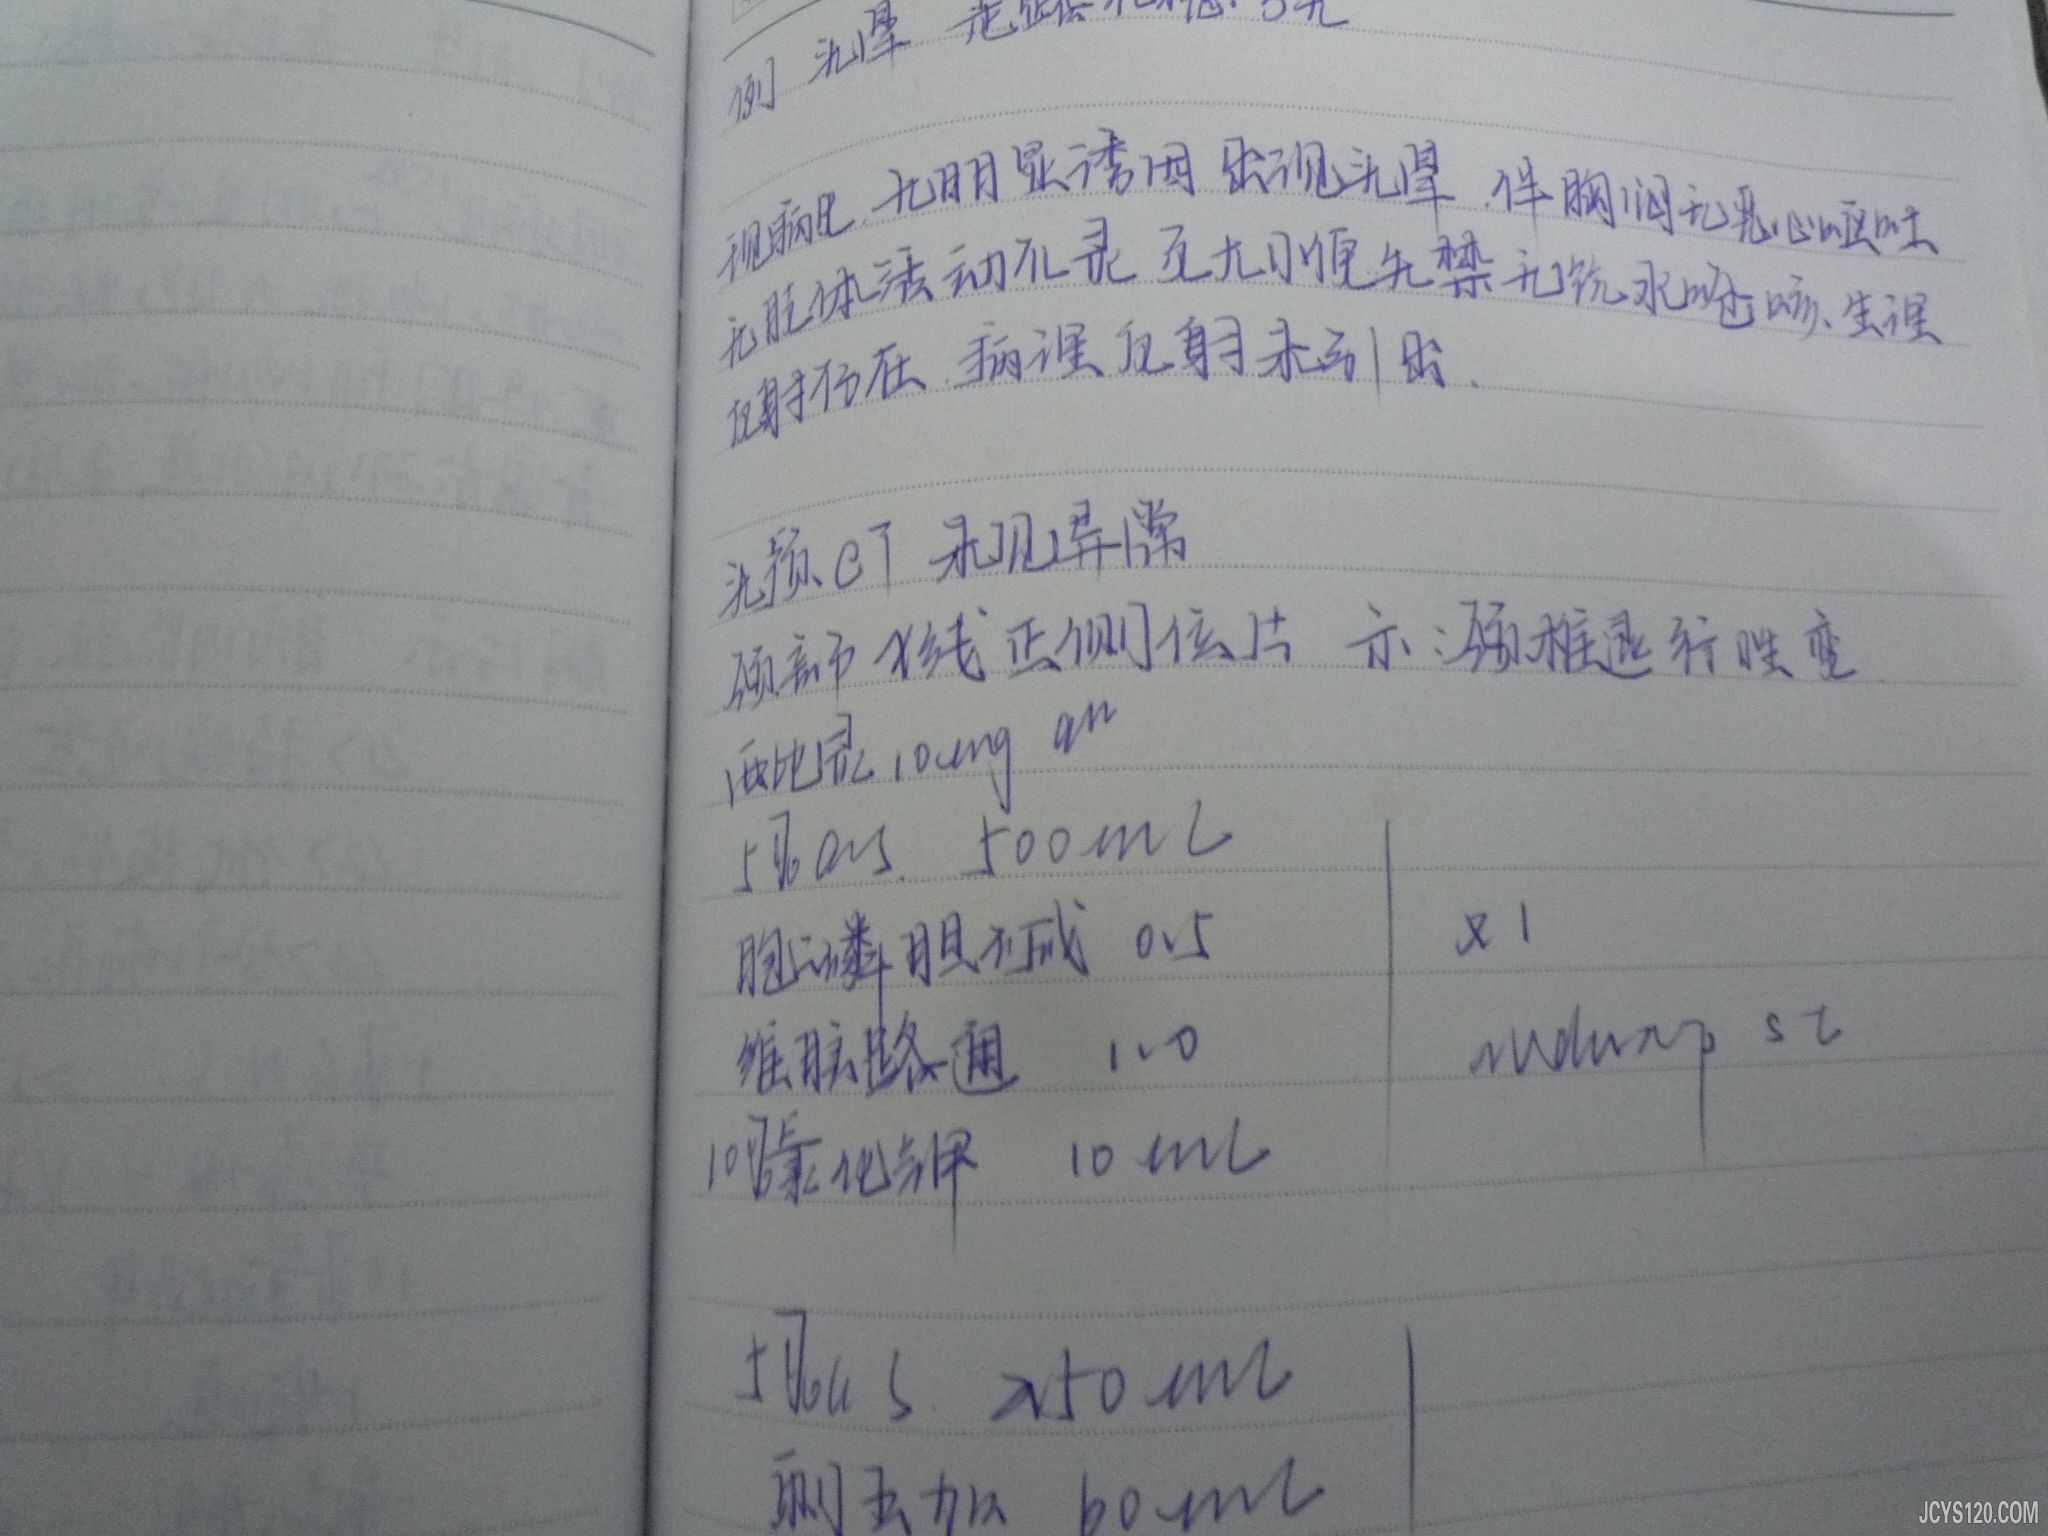 例 头晕 走路不稳 3天
现病史 无明显诱因出现头晕.伴胸闷无恶心呕吐
无肢体活动不灵 无大小便失禁无饮水呛咳、生理
反射存在.病理反射未引出.
头颅CT 未见异常
颈部X线正侧位片 示:颈椎退行性变
西比灵 10mg qn
5%GS. 500mL
胞二磷胆碱 0.5
x1
维脑路通 1.0
10%氯化钾 10mL
5%GS. 250mL
刺五加 60mL
JCYS120.COM